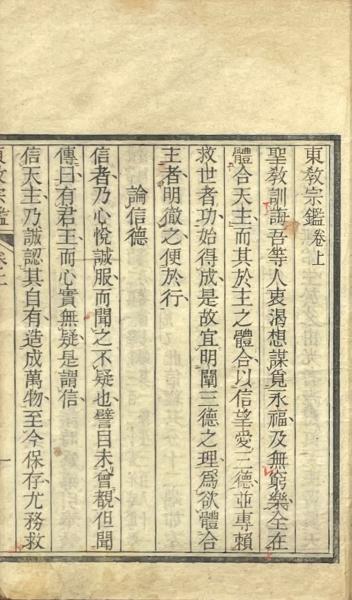 東教宗鑑卷上
聖教訓誨吾等人衷渴想謀覓永福及無窮樂全在
體合天主而其於主之體合以信望愛三德並專賴
救世者功始得成是故宜明闡三德之理為欲體合
主者明徹之便於行
論信德
信者乃心悅誠服而聞之不疑也譬目未曾覩但聞
傳曰有君王而心實無疑是謂信
信天主乃誠認其自有造成萬物至今保存尤務救
東教宗鑑 卷上 一